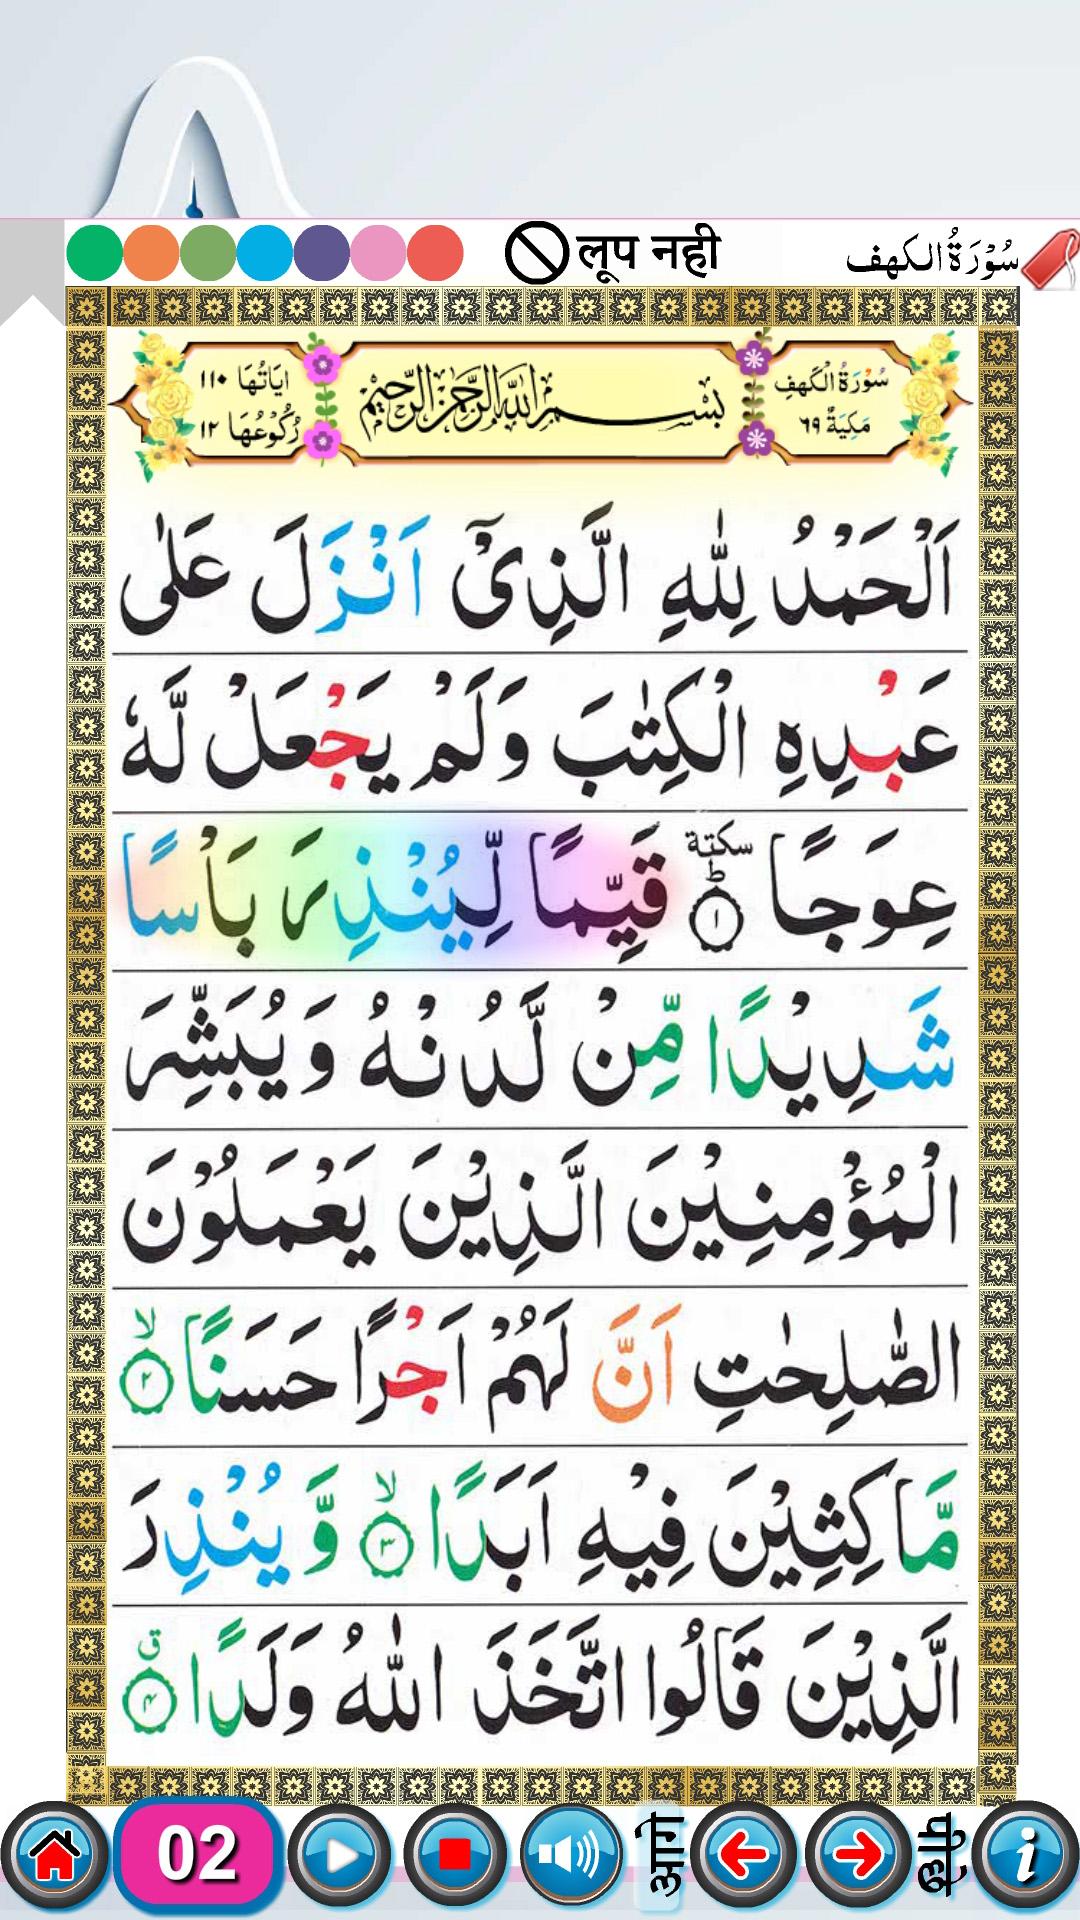 लूप नही
سُوْرَةُ الكهف
سُوْرَةُ الْكَهفِ
مَكِيَّةٌ ٦٩
بِسْمِ اللّٰهِ الرَّحْمٰنِ الرَّحِيْمِ
اٰيَاتُهَا ١١٠
رُكُوْعُهَا ١٢
اَلْحَمْدُ لِلّٰهِ الَّذِيْۤ اَنْزَلَ عَلٰى
عَبْدِهِ الْكِتٰبَ وَلَمْ يَجْعَلْ لَّهٗ
عِوَجًا ۱ ؕ سكتة قَيِّمًا لِّيُنْذِرَ بَاْسًا
شَدِيْدًا مِّنْ لَّدُنْهُ وَيُبَشِّرَ
الْمُؤْمِنِيْنَ الَّذِيْنَ يَعْمَلُوْنَ
الصّٰلِحٰتِ اَنَّ لَهُمْ اَجْرًا حَسَنًا ۲ ۙ
مَّاكِثِيْنَ فِيْهِ اَبَدًا ۳ ۙ وَّيُنْذِرَ
الَّذِيْنَ قَالُوا اتَّخَذَ اللّٰهُ وَلَدًا ۴ ق
02
आगे
पीछे
i